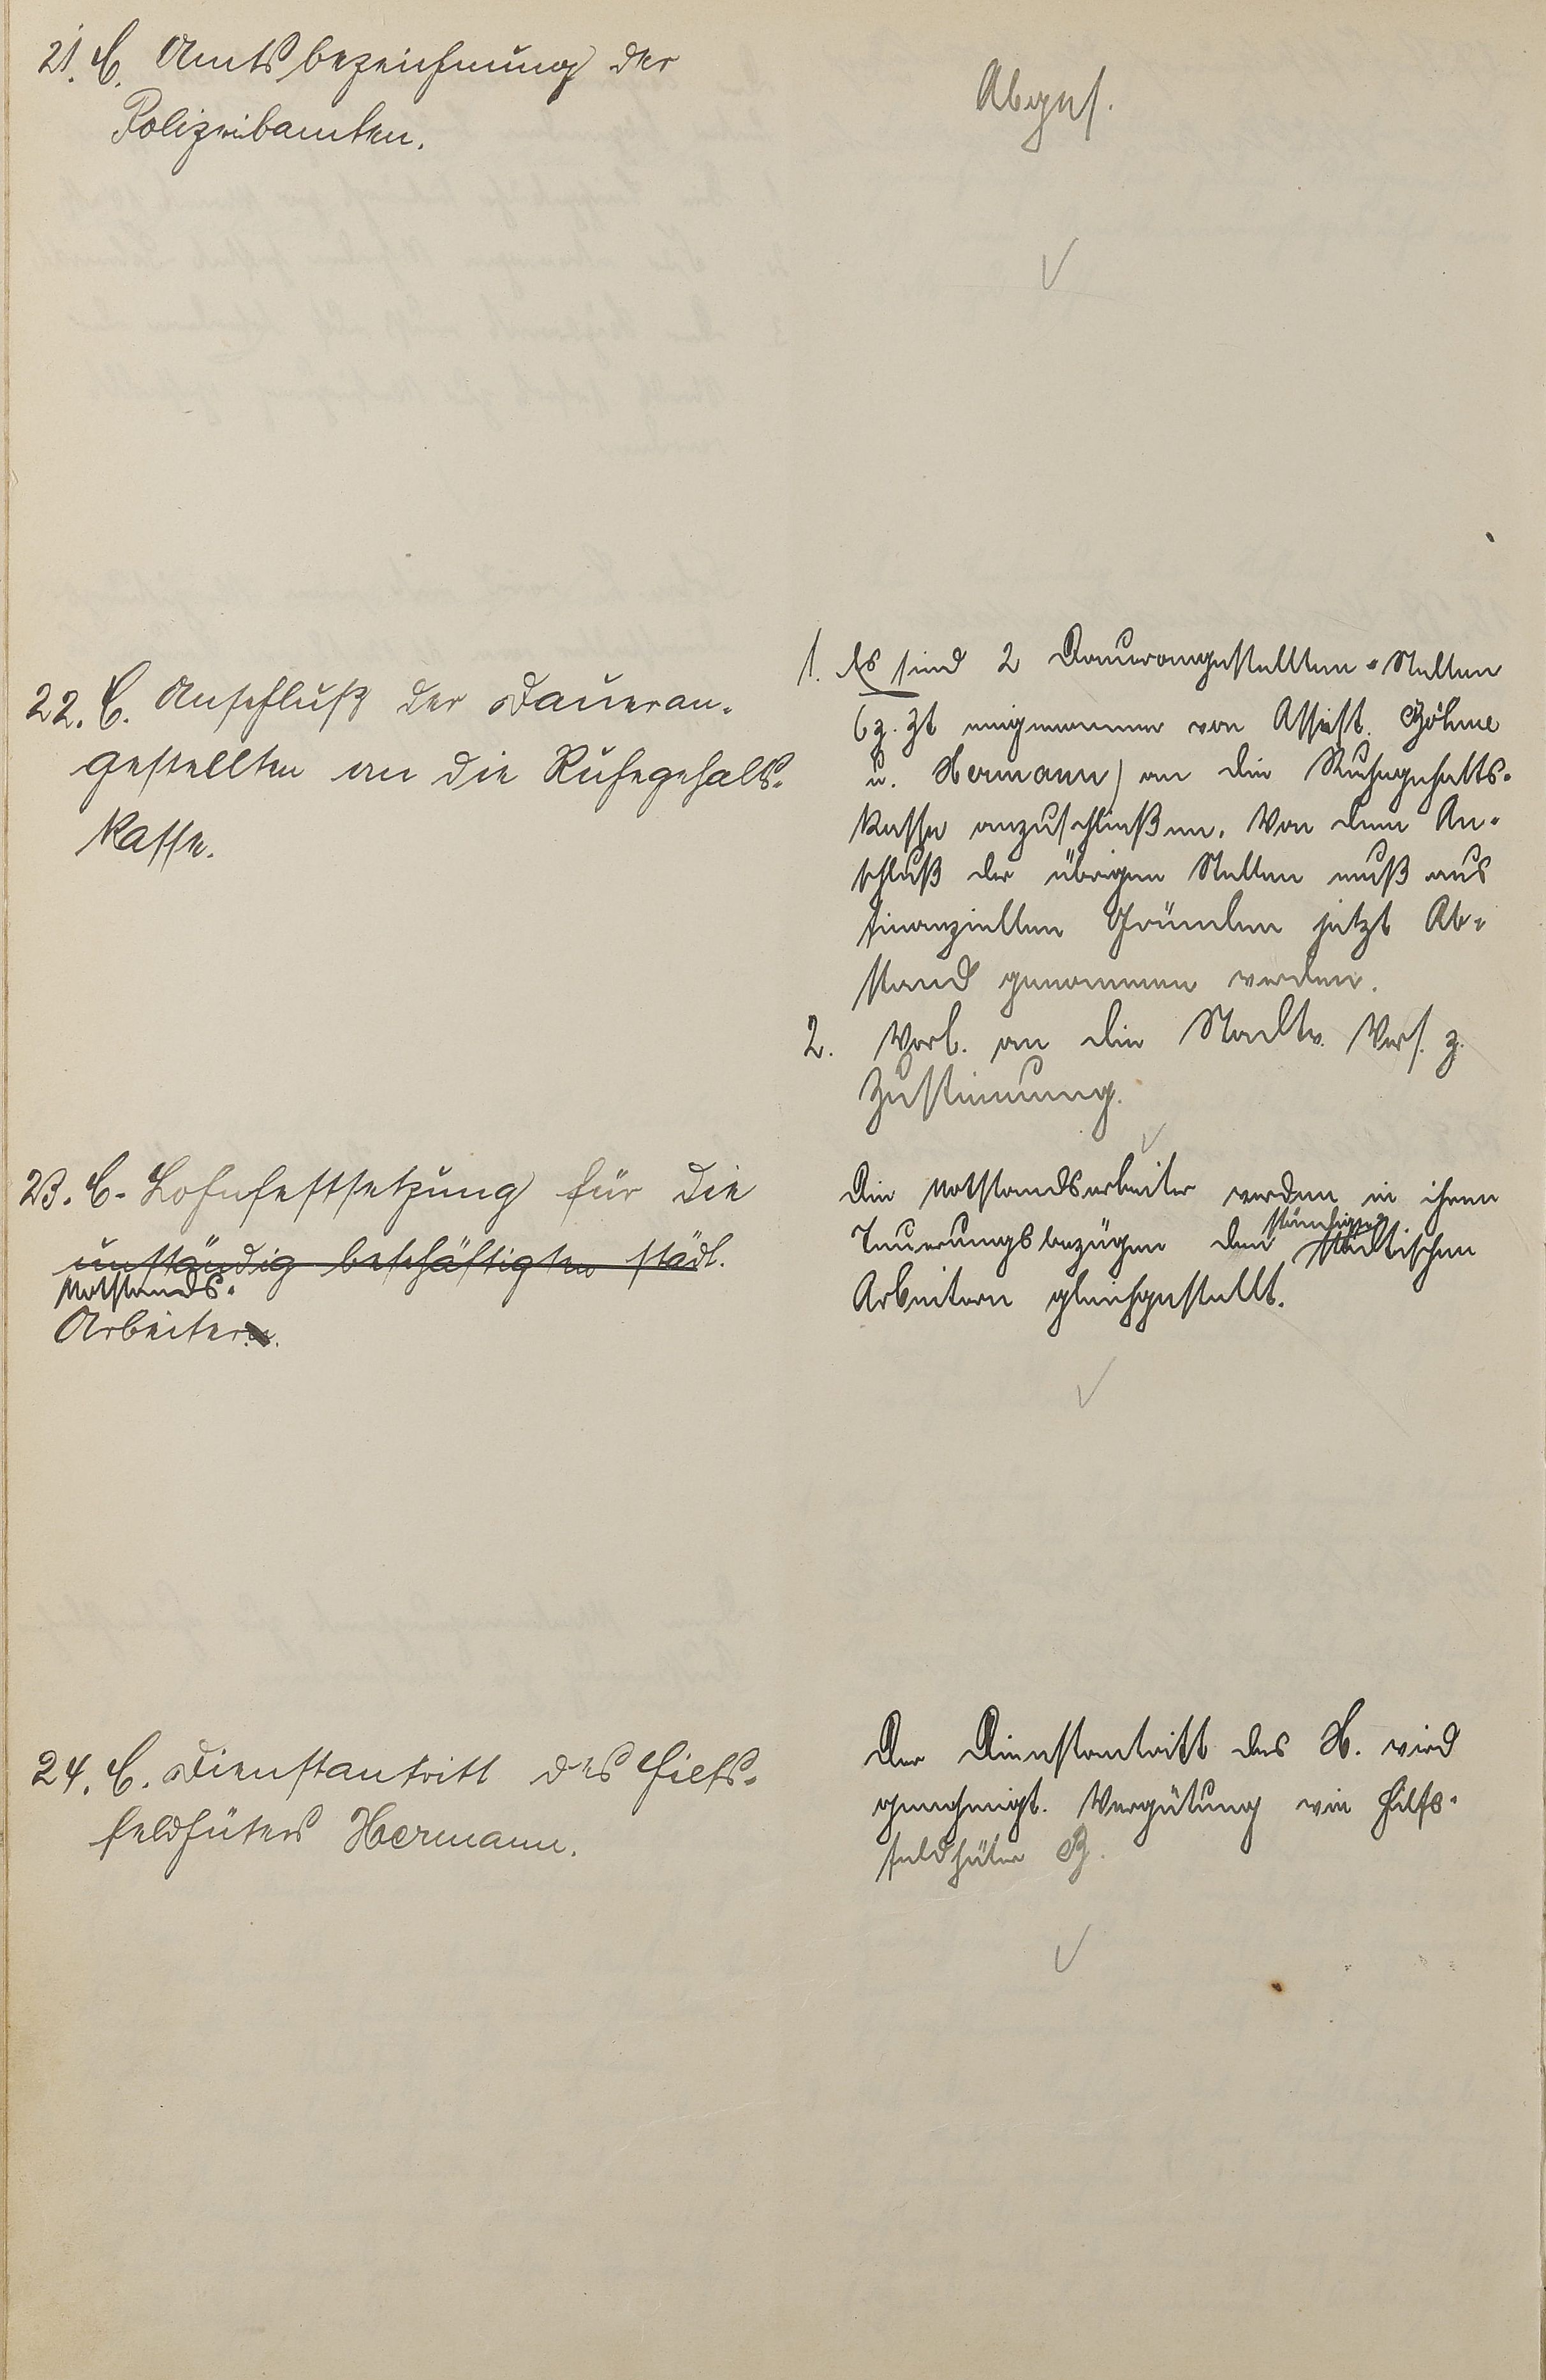 21. C. Amtsbezeichnung der
Polizeibamten.
Abges.
22. C. Anschluß der Daueran-
gestellten an die Ruhegehalts-
kasse.
1. Es sind 2 Dauerangestellten-Stellen
(z. Zt eingenommen von Assist. Böhme
u. Hermann) an die Ruhegehalts-
kasse anzuschließen. Von dem An-
schluß der übrigen Stellen muß aus
finanziellen Gründen jetzt Ab-
stand genommen werden.
2. Vorl. an die Stadtv. Vers. z.
Zustimmung.
23. C. Lohnfestsetzung für die
unständig beschäftigten städt.
Notstands-
Arbeiter.
Die Notstandsarbeiter werden in ihren
ständigen
Teuerungsbezügen den städtischen
Arbeitern gleichgestellt.
24. C. Dienstantritt des Hilfs-
feldhüters Hermann.
Der Dienstantritt des H. wird
genehmigt. Vergütung wie Hilfs-
feldhüter B.